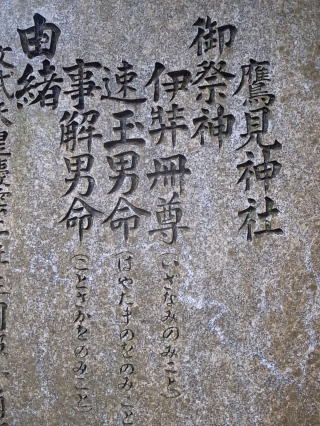 鷹見神社
御祭神
伊弉冊尊(いざなみのみこと)
速玉男命(はやたまのをのみこと
事解男命(ことさかをのみこと)
由緒